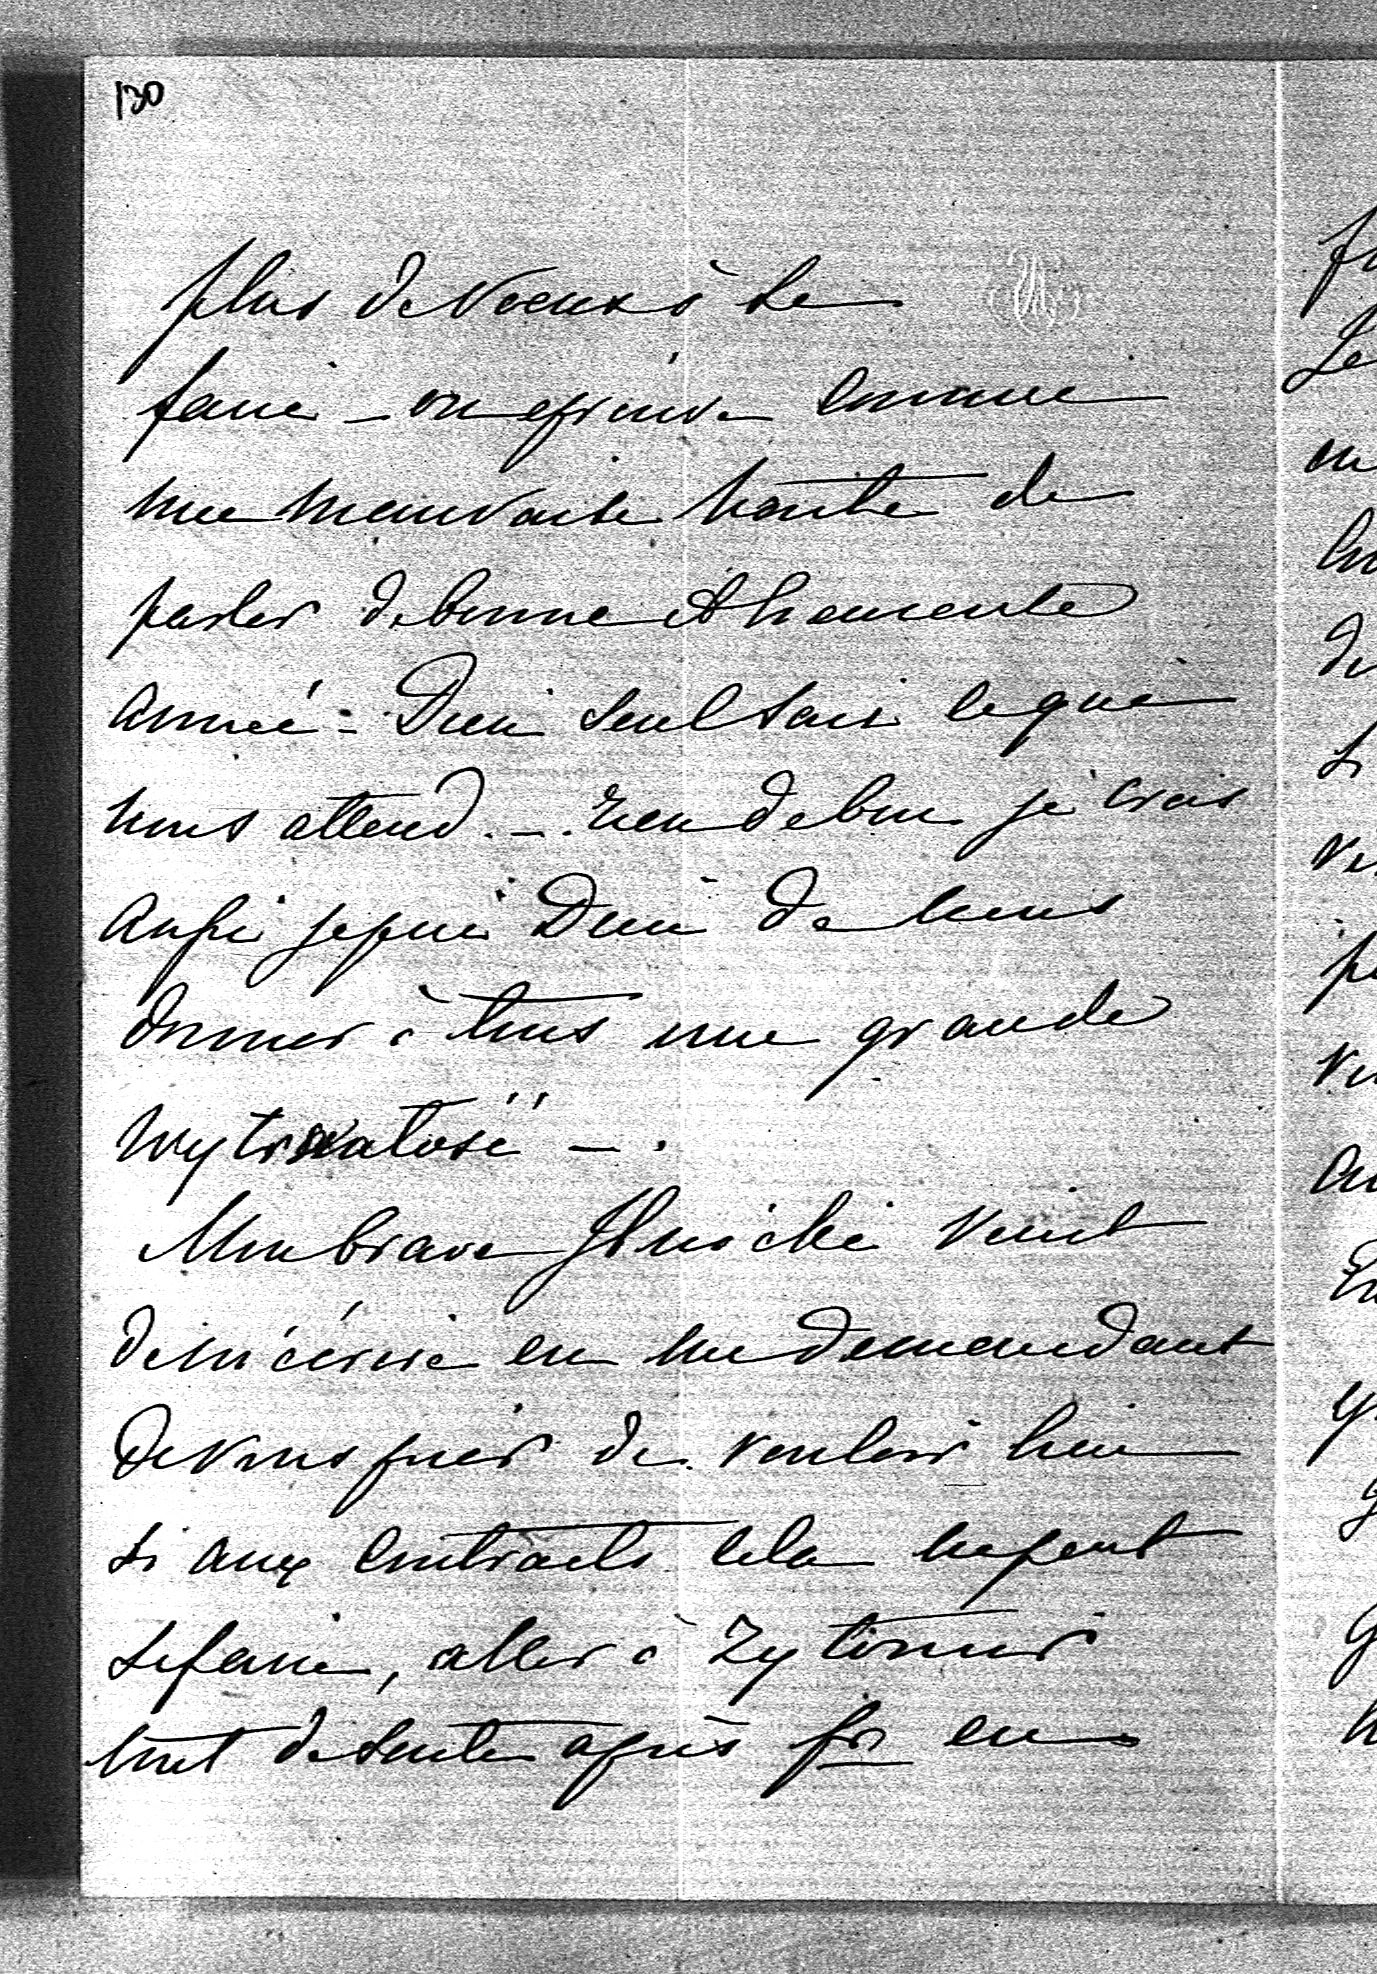 130
plus de voeux à se
faire – on éprouve comme
une mauvaise honte de
parler de bonne et heureuse
année – Dieu seul sait ce qui
nous attend. – . rien de bon je crois
aussi je prie Dieu de nous
donner à tous une grande
wytrwałość – .
Mon brave vient
de m'écrire en me demandant
de vous prier de vouloir bien
si aux contracts cela ne peut
se faire, aller à Zytomir
tout de suite après pr en